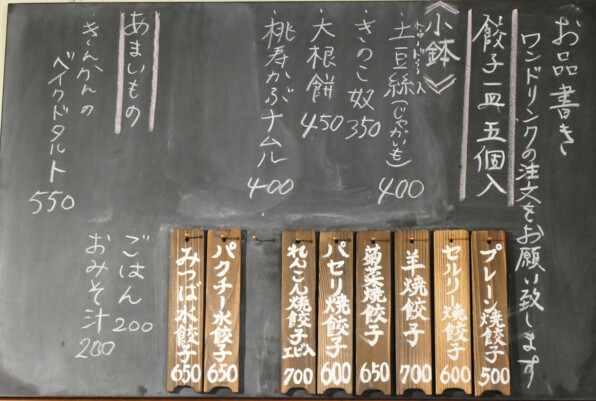 お品書き
ワンドリンクの注文をお願い致します
餃子一皿五個入
《小鉢》
土豆絲(じゃがいも) 400
きのこ奴 350
大根餅 450
桃寿かぶナムル 400
あまいもの
きんかんの
ベイクドタルト 550
ごはん 200
おみそ汁 200
プレーン焼餃子 500
セルリー焼餃子 600
羊焼餃子 700
菊菜焼餃子 650
パセリ焼餃子 600
れんこん焼餃子 エビ入 700
パクチー水餃子 650
みつば水餃子 650